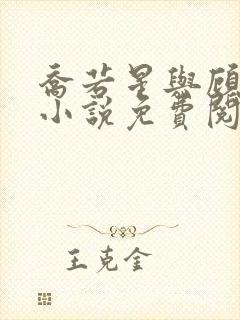 喬若星與顧
小說免費閱
王克金